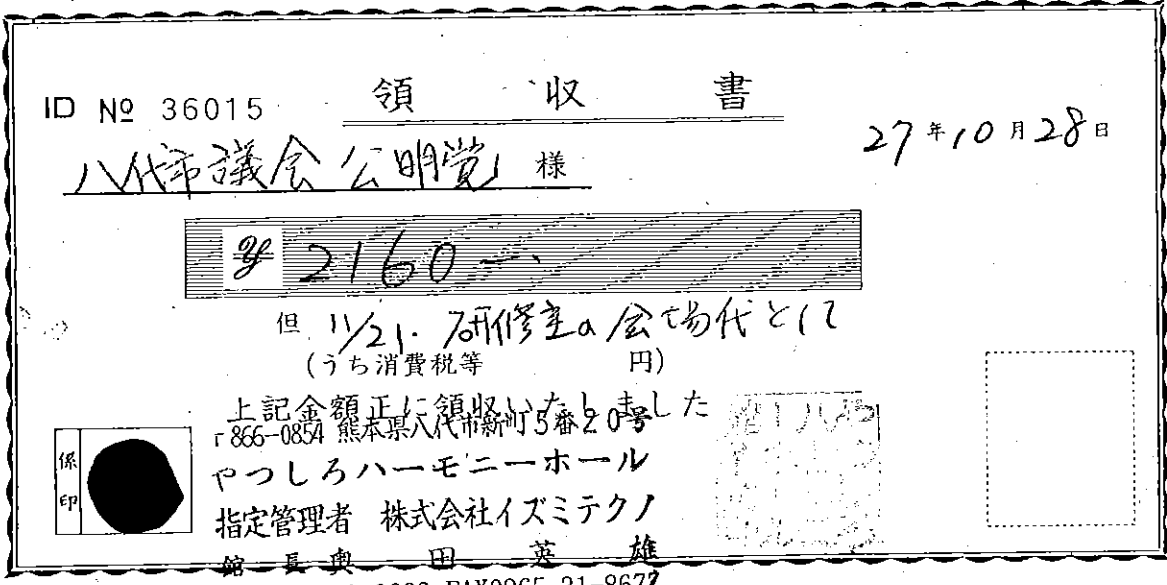 領収書
ID № 36015
27年10月28日
八代市議会 公明党 様
¥ 2160-.
但 11/21. 研修室の会場代として
(うち消費税等 円)
上記金額正に領収いたしました
〒866-0854 熊本県八代市新町5番20号
やつしろハーモニーホール
指定管理者 株式会社イズミテクノ
館長 奥田英雄
FAX0965-21-8677
係印